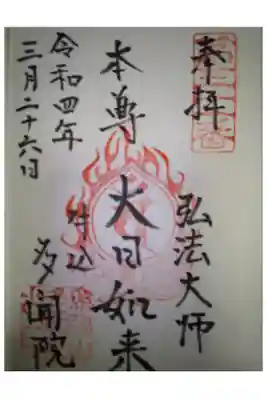 奉拝
弘法大師
本尊 大日如来
牛込
多聞院
令和四年
三月二十六日